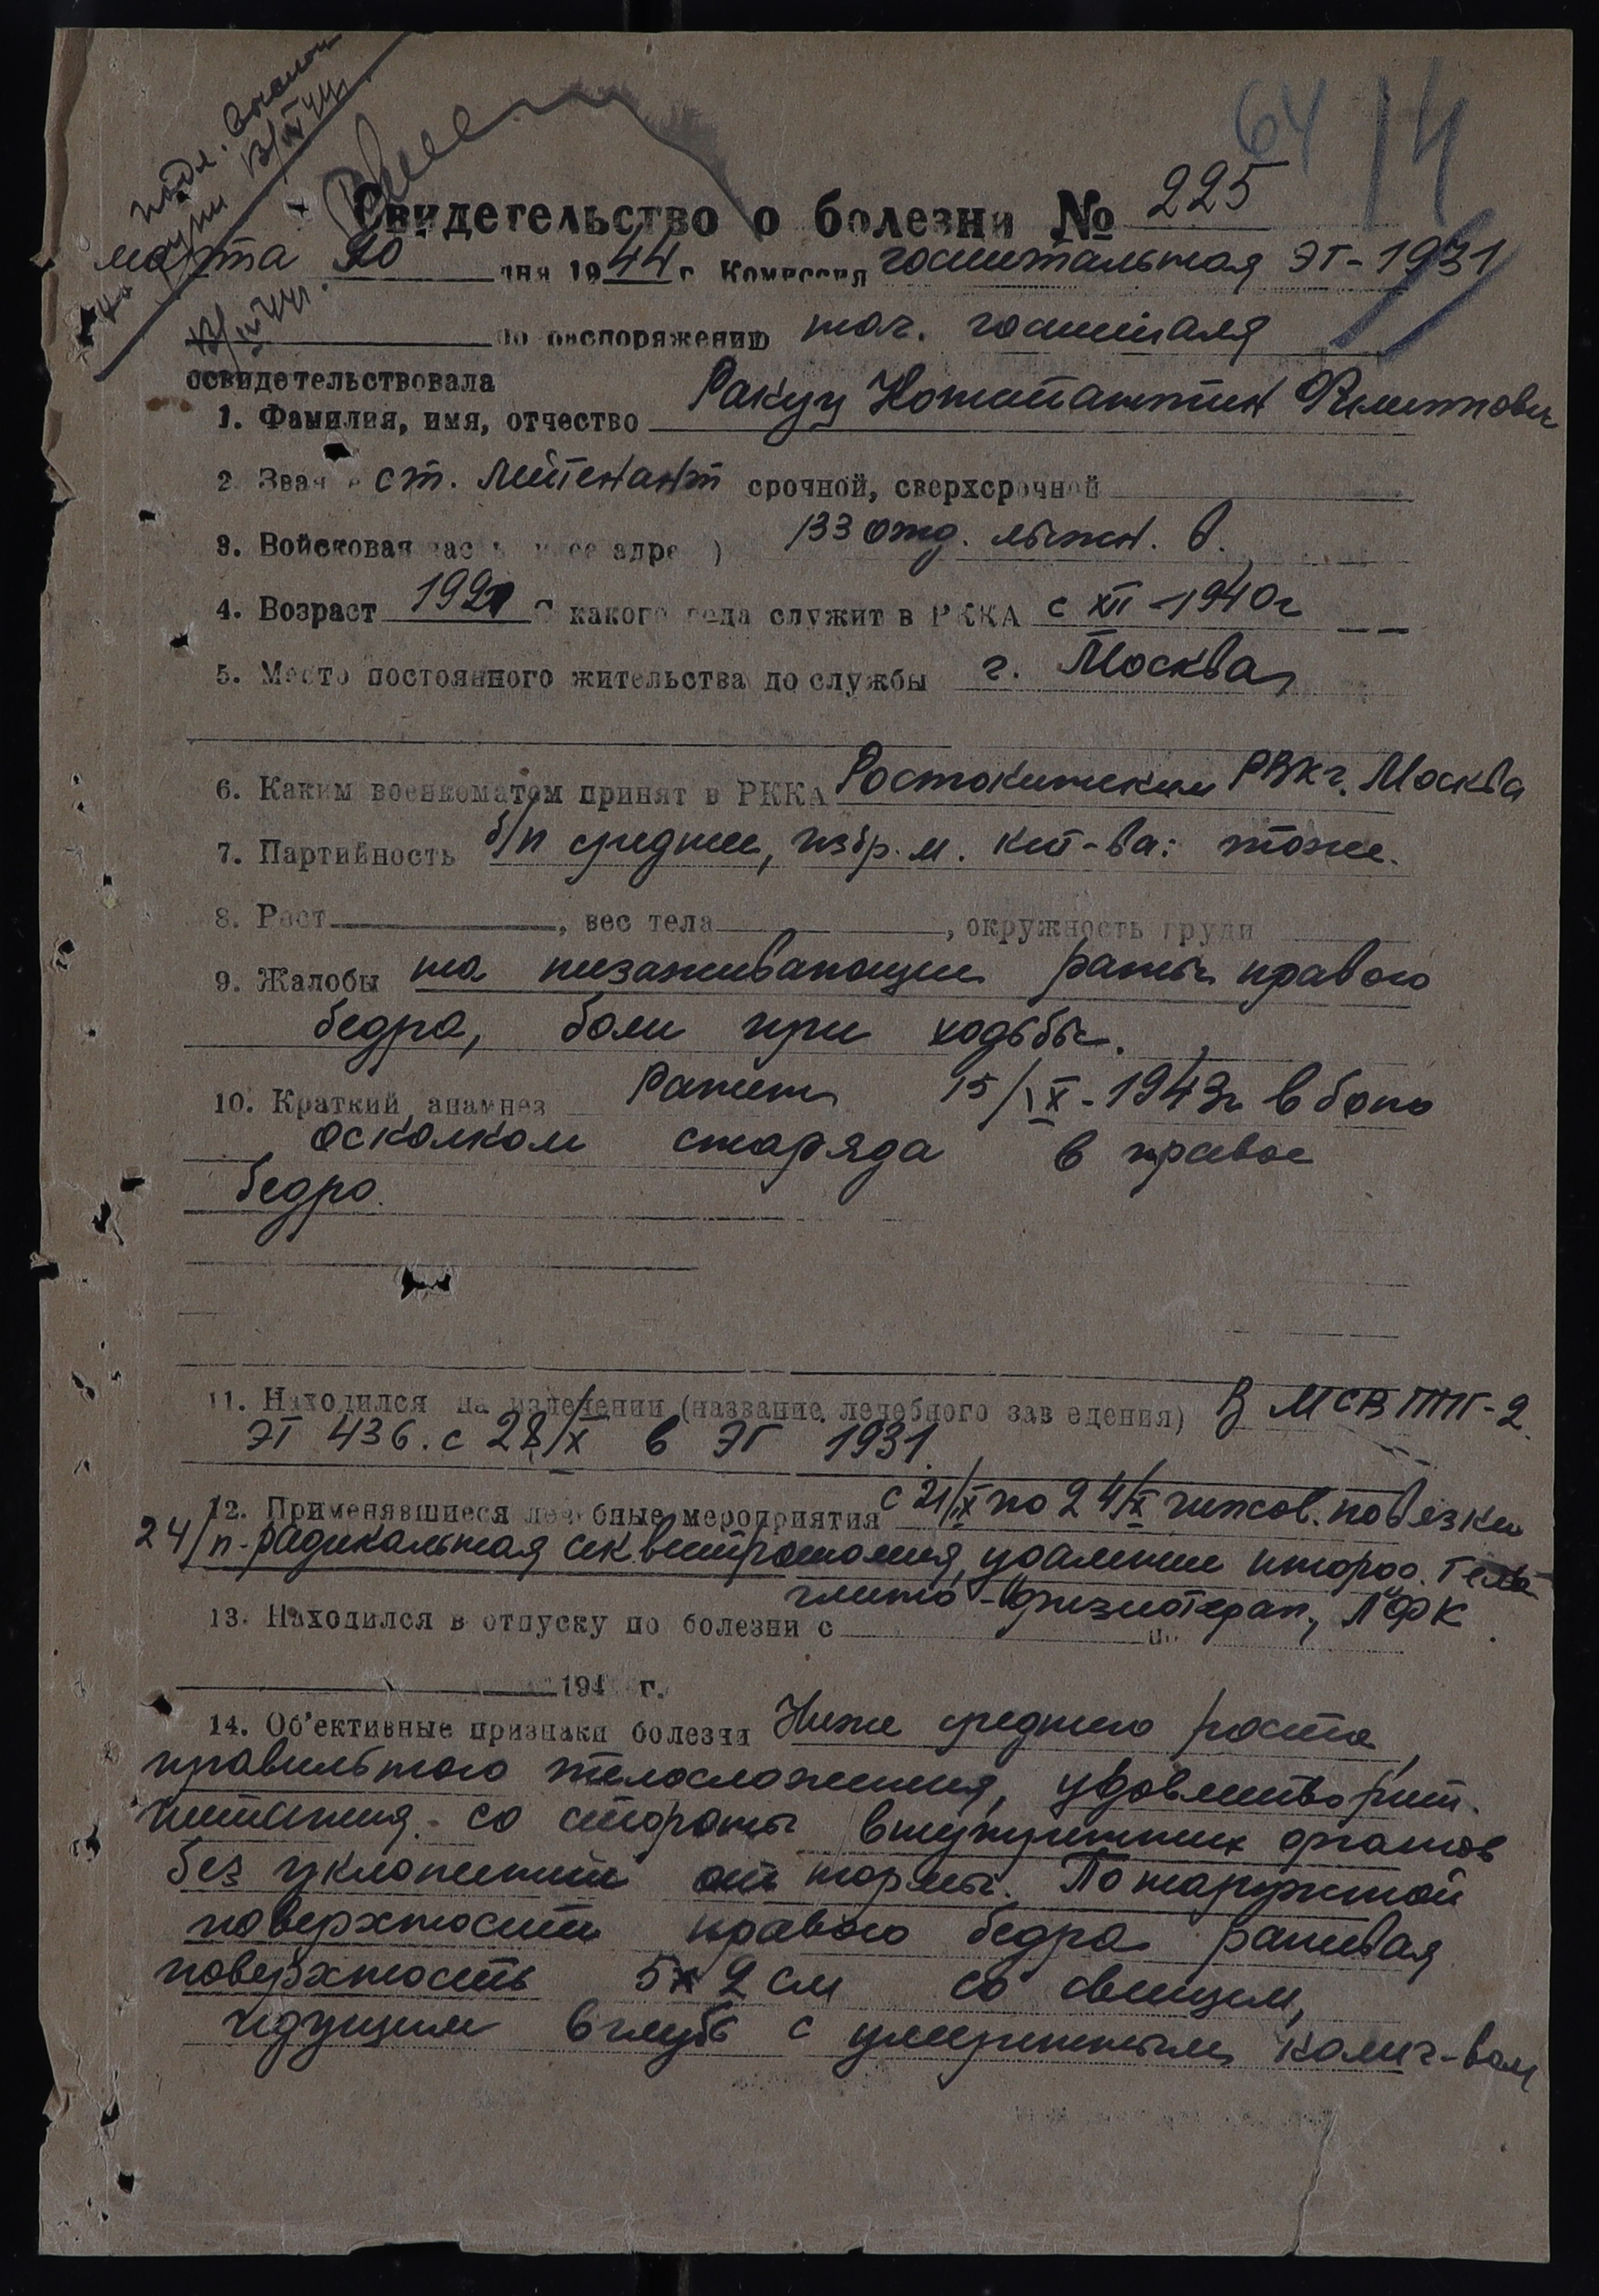 64 14
Свидетельство о болезни № 225
марта дня 1944 г. Комиссия госпитальная ЭГ-1931
по распоряжению нач. госпиталя
освидетельствовала
1. Фамилия, имя, отчество Ракуц Константин Филиппович
2. Звание ст. лейтенант срочной, сверхсрочной
3. Войсковая часть (и ее адрес) 133 отд. лыжн. б.
4. Возраст С какого года служит в РККА с XII-1940г
5. Место постоянного жительства до службы г. Москва
6. Каким военкоматом принят в РККА Ростокинским РВК г. Москва
7. Партийность б/п среднее,
8. Рост , вес тела , окружность груди
9. Жалобы на незаживающие раны правого
бедра, боли при ходьбе.
10. Краткий анамнез Ранен 15/IX-1943г в бою
осколком снаряда в правое
бедро.
11. Находился на излечении (название лечебного заведения) В МСВ ТППГ-2
ЭГ 436. с 28/X в ЭГ 1931.
12. Применявшиеся лечебные мероприятия гипсов. повязки
24/ радикальная секвестротомия, удаление инород. тела
физиотерап., ЛФК
13. Находился в отпуску по болезни с по
194 г.
14. Об'ективные признаки болезни Ниже среднего роста,
правильного телосложения, удовлетворит.
питания. со стороны внутренних органов
без уклонений от нормы. По наружной
поверхности правого бедра раневая
поверхность 5х2 см со свищем,
идущим вглубь с умеренным колич-вом